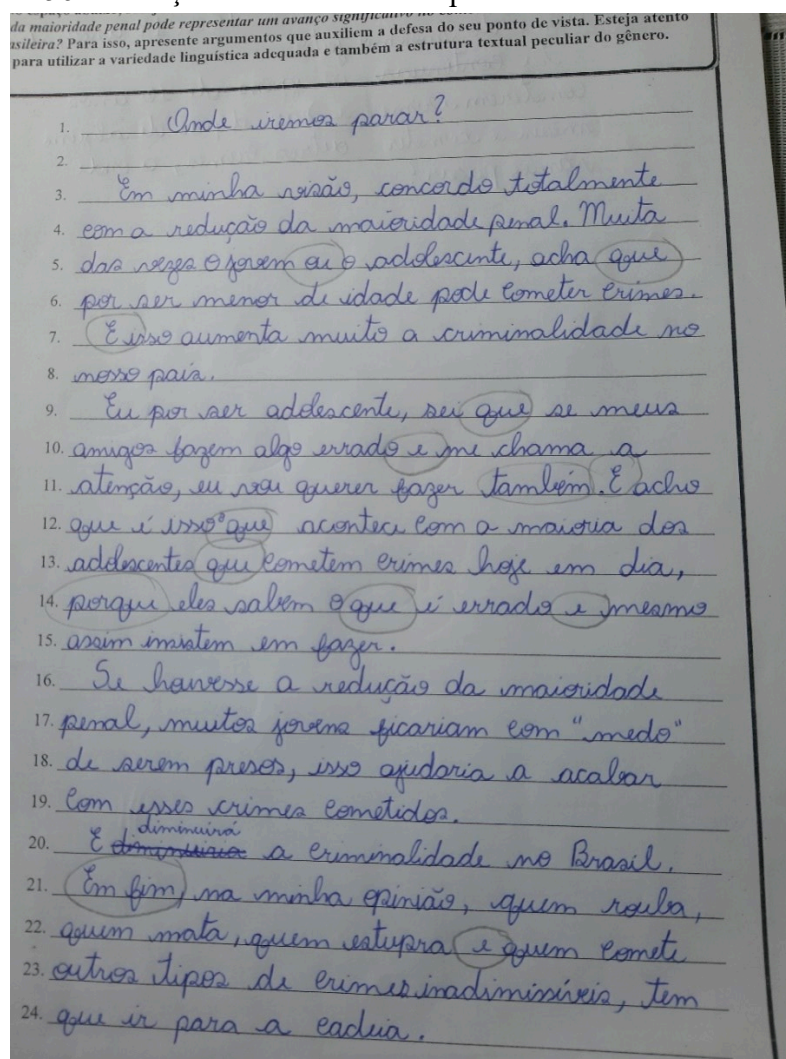 da maioridade penal pode representar um avanço significativo no
asileira? Para isso, apresente argumentos que auxiliem a defesa do seu ponto de vista. Esteja atento
para utilizar a variedade linguística adequada e também a estrutura textual peculiar do gênero.
1. Onde iremos parar?
2.
3. Em minha visão, concordo totalmente
4. com a redução da maioridade penal. Muita
5. das vezes o jovem ou o adolescente, acha que
6. por ser menor de idade pode cometer crimes.
7. E isso aumenta muito a criminalidade no
8. nosso país.
9. Eu por ser adolescente, sei que se meus
10. amigos fazem algo errado e me chama a
11. atenção, eu vou querer fazer também. E acho
12. que é isso que acontece com a maioria dos
13. adolescentes que cometem crimes hoje em dia,
14. porque eles sabem o que é errado e mesmo
15. assim insistem em fazer.
16. Se houvesse a redução da maioridade
17. penal, muitos jovens ficariam com "medo"
18. de serem presos, isso ajudaria a acabar
19. com esses crimes cometidos.
20. E diminuirá a criminalidade no Brasil.
21. Em fim, na minha opinião, quem rouba,
22. quem mata, quem estupra e quem comete
23. outros tipos de crimes inadimissíveis, tem
24. que ir para a cadeia.